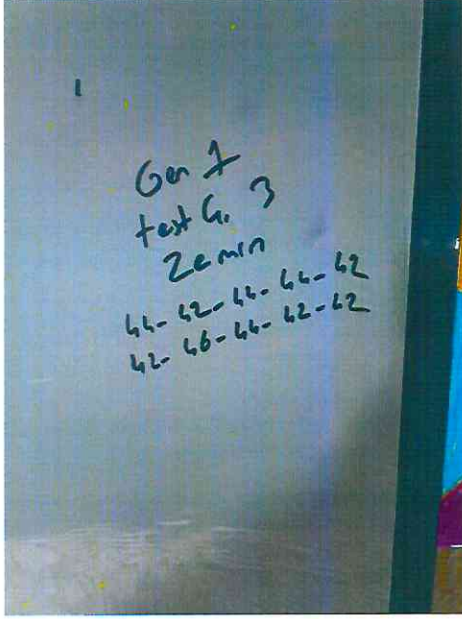 Gen 1
test G. 3
Zemin
44-42-44-44-42
42-46-44-42-42